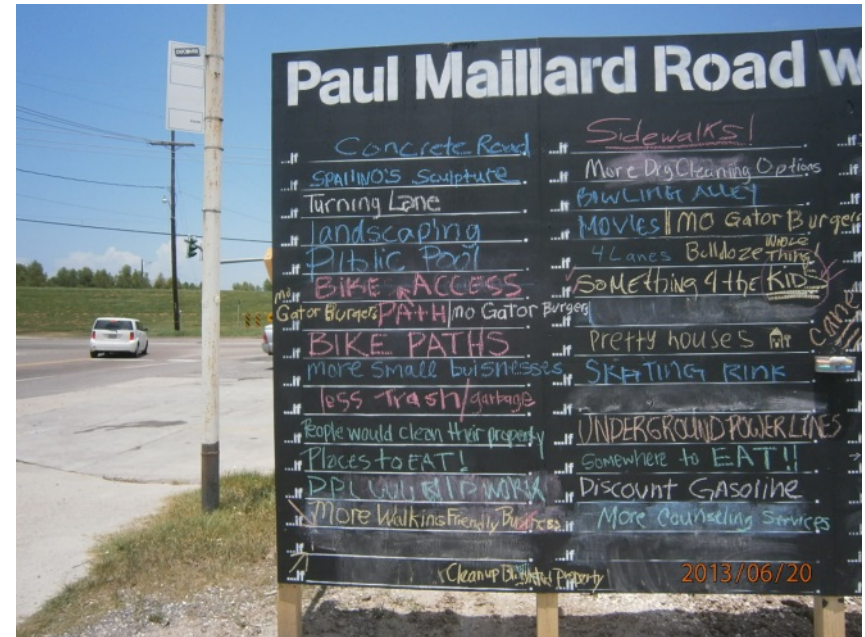 Paul Maillard Road W
...If Concrete Road
...If SPALINO'S Sculpture
...If Turning Lane
...If landscaping
...If Public Pool
...If BIKE ACCESS
mo
...If Gator Burgers PATH/mo Gator Burgers
...If BIKE PATHS
...If more small buisnesses
...If less Trash/garbage
...If People would clean their property
...If Places to EAT!
...If
...If More Walkins Friendly Business
...If
...If Clean up Blighted Property
...If Sidewalks!
...If More Dry Cleaning Options
...If BOWLING ALLEY
...If MOVIES | MO Gator Burgers
...If 4 Lanes Bulldoze WHOLE Thing!
...If SOMEthing 4 the KIDS
...If
...If Pretty houses
...If SKATING RINK
...If
...If UNDERGROUND POWER LINES
...If Somewhere to EAT!!
...If Discount GASoline
...If More Counseling Services
...If
2013/06/20